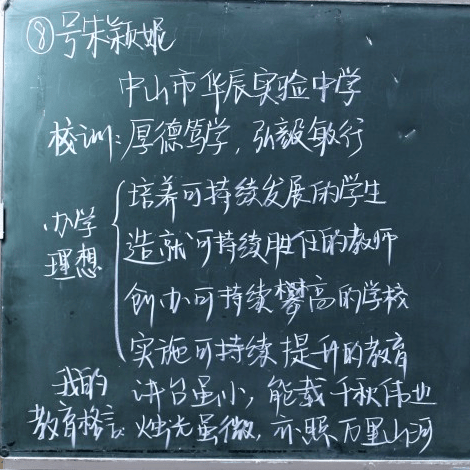 ⑧号朱颖妮
中山市华辰实验中学
校训:厚德笃学,弘毅敏行
办学理想
培养可持续发展的学生
造就可持续胜任的教师
创办可持续攀高的学校
实施可持续提升的教育
我的教育格言:
讲台虽小,能载千秋伟业
烛光虽微,亦照万里山河